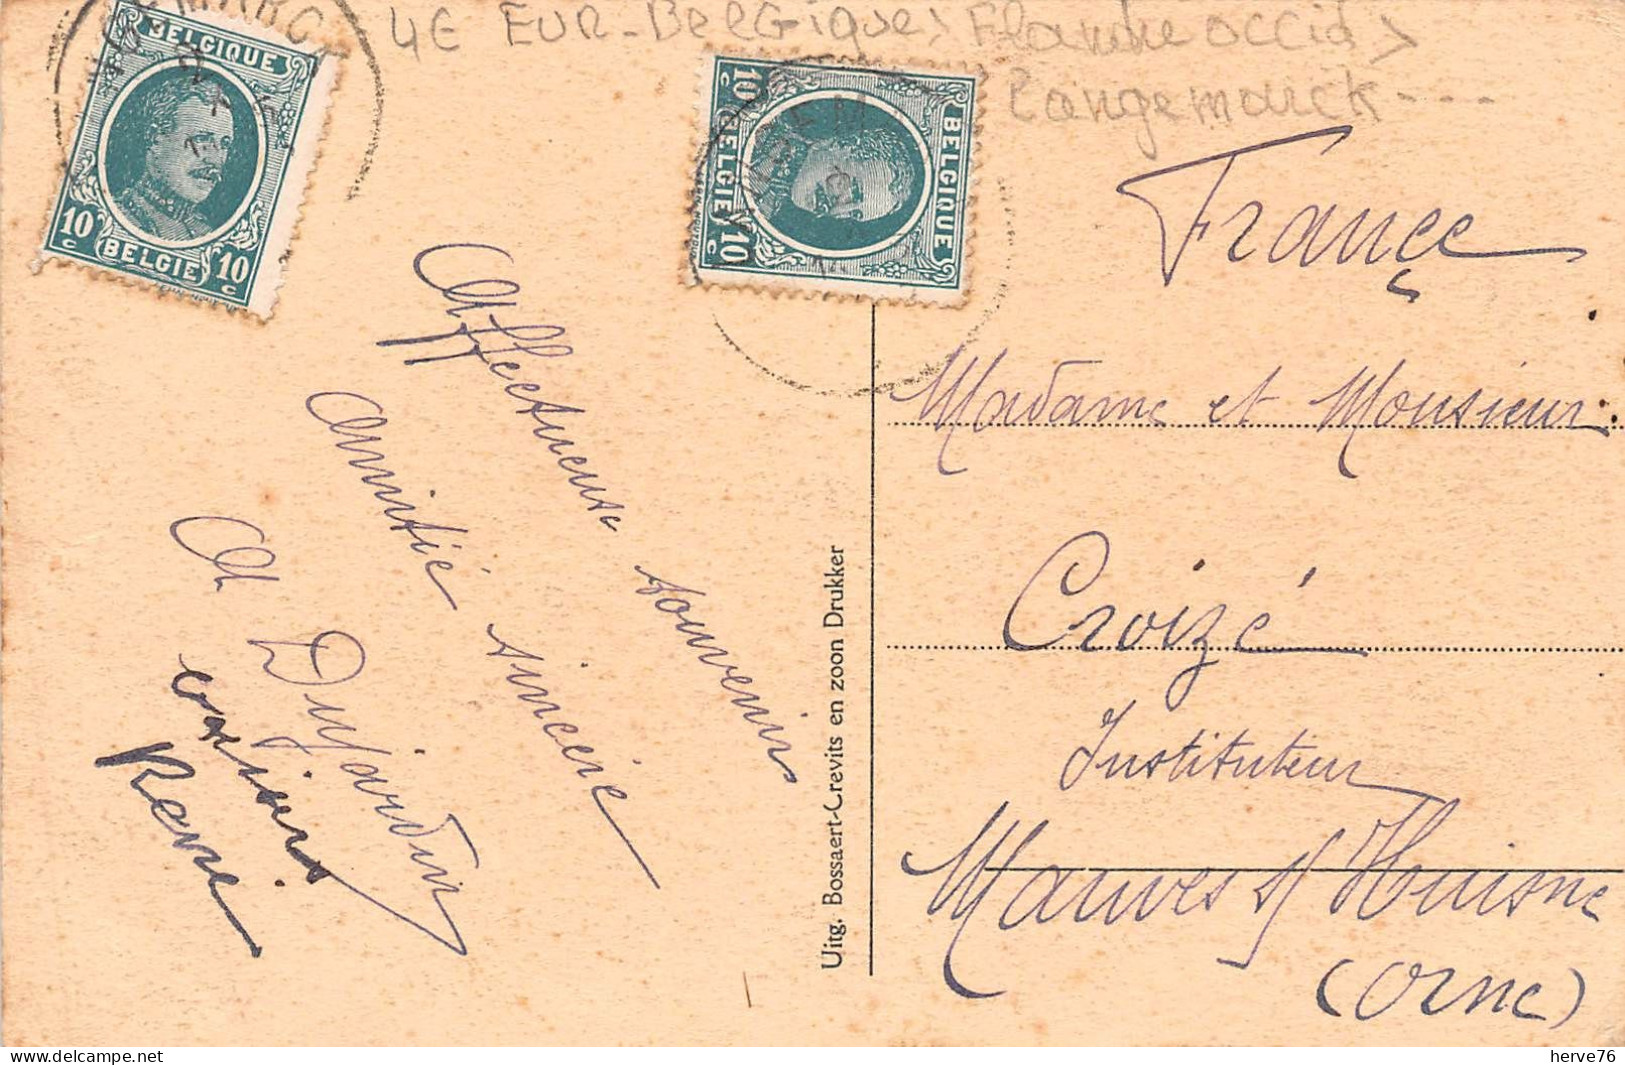 4€ EUR - Belgique > Flandre occid >
Langemarck - - -
BELGIQUE
10c
BELGIE
10c
10c
BELGIE
10c
BELGIQUE
France
Affectueux souvenir
Amitié sincère
A Dujardin
Rene
Uitg. Bossaert-Crevits en zoon Drukker
Madame et Monsieur
Croizé
Instituteur
Mauves s/ Huisne
(Orne)
herve76